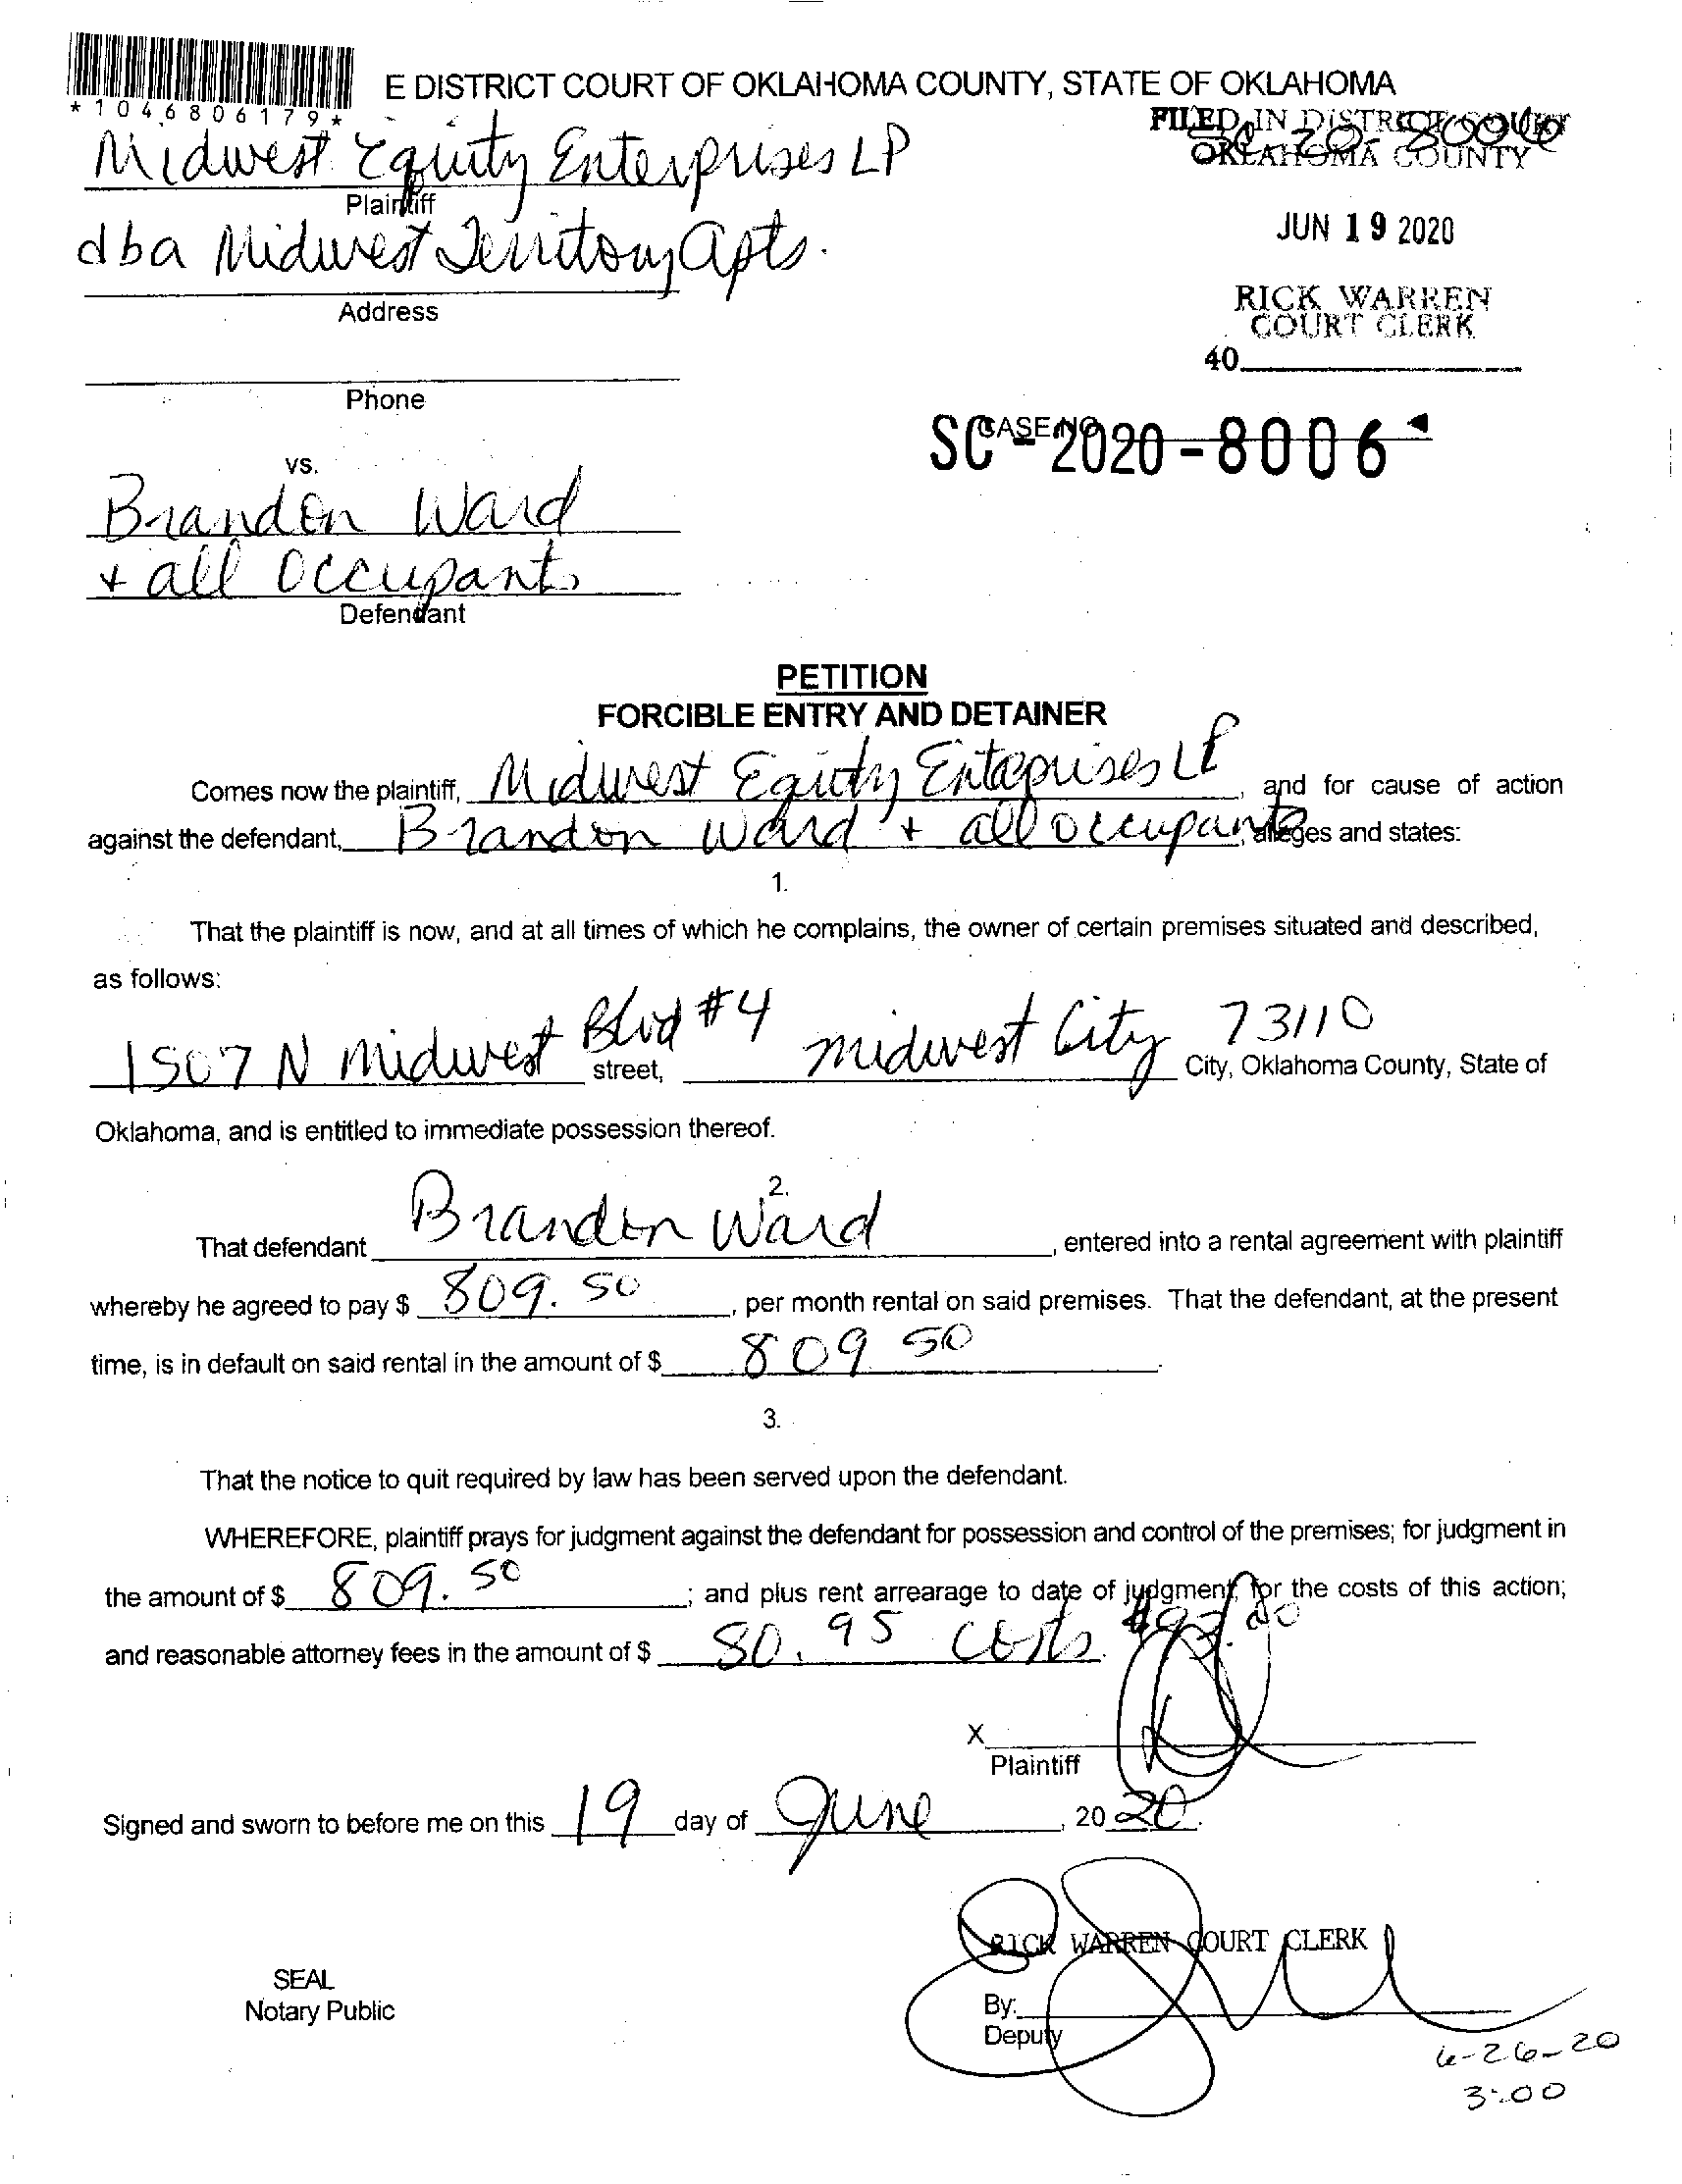 E DISTRICT COURT OF OKLAHOMA COUNTY, STATE OF OKLAHOMA
*1046806179*
FILED IN DISTRICT COURT
OKLAHOMA COUNTY
Midwest Equity Enterprises LP
Plaintiff
JUN 19 2020
dba Midwest Territory Apts.
Address
RICK WARREN
COURT CLERK
40
Phone
CASE NO.
SC-2020-8006
vs.
Brandon Ward
+ all Occupants
Defendant
PETITION
FORCIBLE ENTRY AND DETAINER
Comes now the plaintiff, Midwest Equity Enterprises LP, and for cause of action
against the defendant, Brandon Ward + all occupants, alleges and states:
1.
That the plaintiff is now, and at all times of which he complains, the owner of certain premises situated and described,
as follows:
1507 N Midwest Blvd #4 street, midwest City 73110 City, Oklahoma County, State of
Oklahoma, and is entitled to immediate possession thereof.
2.
That defendant Brandon Ward, entered into a rental agreement with plaintiff
whereby he agreed to pay $ 809.50, per month rental on said premises. That the defendant, at the present
time, is in default on said rental in the amount of $ 809 50.
3.
That the notice to quit required by law has been served upon the defendant.
WHEREFORE, plaintiff prays for judgment against the defendant for possession and control of the premises; for judgment in
the amount of $ 809.50; and plus rent arrearage to date of judgment, for the costs of this action;
and reasonable attorney fees in the amount of $ 80.95 costs
X
Plaintiff
Signed and sworn to before me on this 19 day of June, 2020.
RICK WARREN COURT CLERK
SEAL
Notary Public
By:
Deputy
6-26-20
3:00